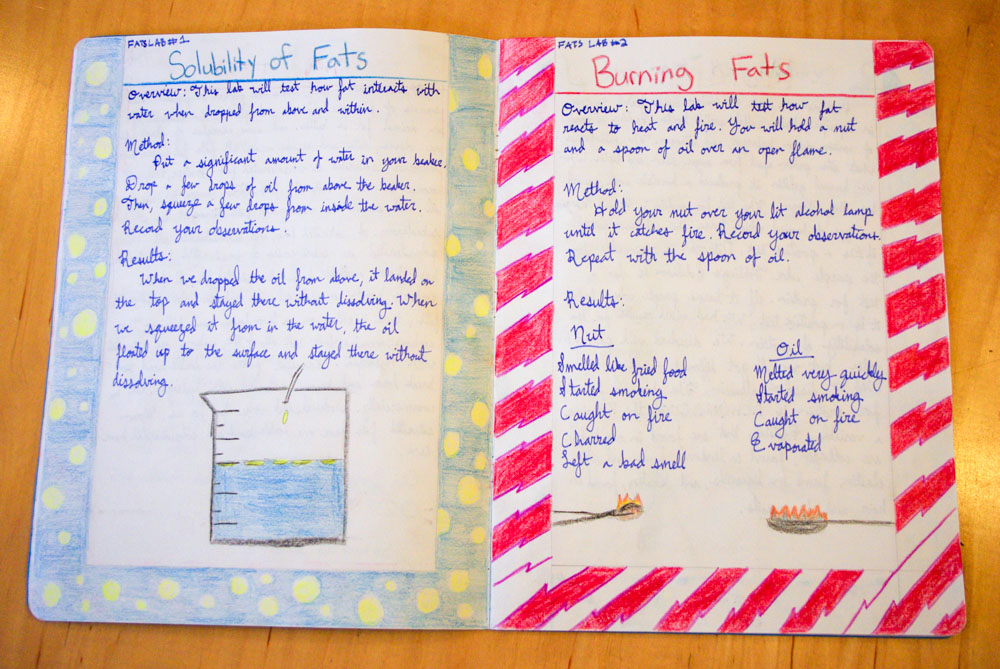 FATS LAB #1
Solubility of Fats
Overview: This lab will test how fat interacts with
water when dropped from above and within.
Method:
Put a significant amount of water in your beaker.
Drop a few drops of oil from above the beaker.
Then, squeeze a few drops from inside the water.
Record your observations.
Results:
When we dropped the oil from above, it landed on
the top and stayed there without dissolving. When
we squeezed it from in the water, the oil
floated up to the surface and stayed there without
dissolving.
FATS LAB #2
Burning Fats
Overview: This lab will test how fat
reacts to heat and fire. You will hold a nut
and a spoon of oil over an open flame.
Method:
Hold your nut over your lit alcohol lamp
until it catches fire. Record your observations.
Repeat with the spoon of oil.
Results:
Nut
Smelled like fried food
Started smoking
Caught on fire
Charred
Left a bad smell
Oil
Melted very quickley
Started smoking
Caught on fire
Evaporated